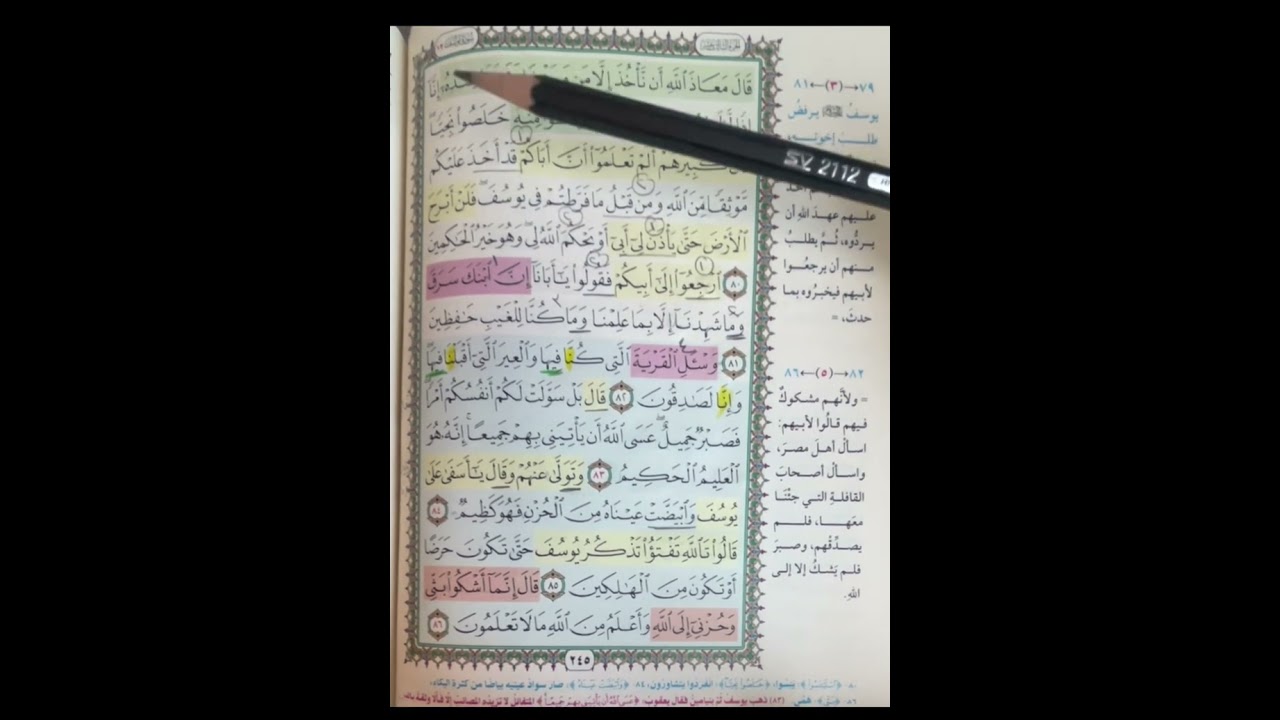 قَالَ مَعَاذَ ٱللَّهِ أَن نَّأْخُذَ إِلَّا مَن إِنَّا
خَلَصُوا۟ نَجِيًّا
كَبِيرُهُمْ أَلَمْ تَعْلَمُوٓا۟ أَنَّ أَبَاكُمْ قَدْ أَخَذَ عَلَيْكُم
مَّوْثِقًا مِّنَ ٱللَّهِ وَمِن قَبْلُ مَا فَرَّطتُمْ فِى يُوسُفَ ۖ فَلَنْ أَبْرَحَ
ٱلْأَرْضَ حَتَّىٰ يَأْذَنَ لِىٓ أَبِىٓ أَوْ يَحْكُمَ ٱللَّهُ لِى ۖ وَهُوَ خَيْرُ ٱلْحَٰكِمِينَ
٨٠ ٱرْجِعُوٓا۟ إِلَىٰٓ أَبِيكُمْ فَقُولُوا۟ يَٰٓأَبَانَآ إِنَّ ٱبْنَكَ سَرَقَ
وَمَا شَهِدْنَآ إِلَّا بِمَا عَلِمْنَا وَمَا كُنَّا لِلْغَيْبِ حَٰفِظِينَ
٨١ وَسْـَٔلِ ٱلْقَرْيَةَ ٱلَّتِى كُنَّا فِيهَا وَٱلْعِيرَ ٱلَّتِىٓ أَقْبَلْنَا فِيهَا
وَإِنَّا لَصَٰدِقُونَ ٨٢ قَالَ بَلْ سَوَّلَتْ لَكُمْ أَنفُسُكُمْ أَمْرًا
فَصَبْرٌ جَمِيلٌ ۖ عَسَى ٱللَّهُ أَن يَأْتِيَنِى بِهِمْ جَمِيعًا ۚ إِنَّهُۥ هُوَ
ٱلْعَلِيمُ ٱلْحَكِيمُ ٨٣ وَتَوَلَّىٰ عَنْهُمْ وَقَالَ يَٰٓأَسَفَىٰ عَلَىٰ
يُوسُفَ وَٱبْيَضَّتْ عَيْنَاهُ مِنَ ٱلْحُزْنِ فَهُوَ كَظِيمٌ ٨٤
قَالُوا۟ تَٱللَّهِ تَفْتَؤُا۟ تَذْكُرُ يُوسُفَ حَتَّىٰ تَكُونَ حَرَضًا
أَوْ تَكُونَ مِنَ ٱلْهَٰلِكِينَ ٨٥ قَالَ إِنَّمَآ أَشْكُوا۟ بَثِّى
وَحُزْنِىٓ إِلَى ٱللَّهِ وَأَعْلَمُ مِنَ ٱللَّهِ مَا لَا تَعْلَمُونَ ٨٦
٢٤٥
SV 2112
٧٩→(٣)←٨١
يوسفُ ﷺ يرفضُ
طلبَ إخوتِه،
عليهم عهدَ اللهِ أن
يردُّوه، ثُمَّ يطلبُ
منهم أن يرجعُوا
لأبيهم فيخبرُوه بما
حدثَ، =
٨٢→(٥)←٨٦
= ولأنَّهم مشكوكٌ
فيهم قالُوا لأبيهم:
اسألْ أهلَ مصرَ،
واسألْ أصحابَ
القافلةِ التي جئْنَا
معَها، فلم
يصدِّقْهم، وصبرَ
فلم يشكُ إلا إلى
اللهِ.
يئسوا، انفردُوا يتشاورُون، ٨٤- ﴿وَٱبْيَضَّتْ عَيْنَاهُ﴾: صار سوادُ عينيه بياضًا من كثرة البكاء،
٨٦- ﴿بَثِّى﴾: همِّي. (٨٣) ذهب يوسفُ ثُمَّ بنيامين فقال يعقوب: ﴿عَسَى ٱللَّهُ أَن يَأْتِيَنِى بِهِمْ جَمِيعًا﴾